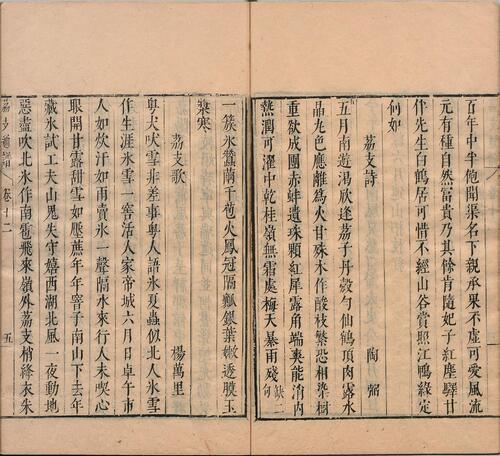 百年中半飽聞渠名下親承果不虛可愛風流
元有種自然富貴乃其餘肯隨妃子紅塵驛甘
伴先生白鶴居可惜不經山谷賞照江鴨綠定
何如
荔支詩 陶弼
五月南遊渴欣逢荔子丹殼勻仙鶴頂肉露水
晶丸色應離爲火甘殊木作酸枝繁恐相染樹
重欲成團赤蚌遺珠顆紅犀露角端爽能消內
熱潤可濯中乾桂嶺無霜處梅天暴雨殘缺二句
一簇冰蠶繭千苞火鳳冠隔瓤銀葉嫩透膜玉
漿寒
荔支歌 楊萬里
粤犬吠雪非差事粤人語冰夏蟲似北人冰雪
作生涯冰雪一窖活人家帝城六月日卓午市
人如炊汗如雨賣氷一聲隔水來行人未喫心
眼開甘露甜雪如壓蔗年年窨子南山下去年
藏氷試工夫山鬼失守嬉西湖北風一夜動地
惡盡吹北氷作南雹飛來嶺外荔支梢絳衣朱
荔支通譜 卷十二 五